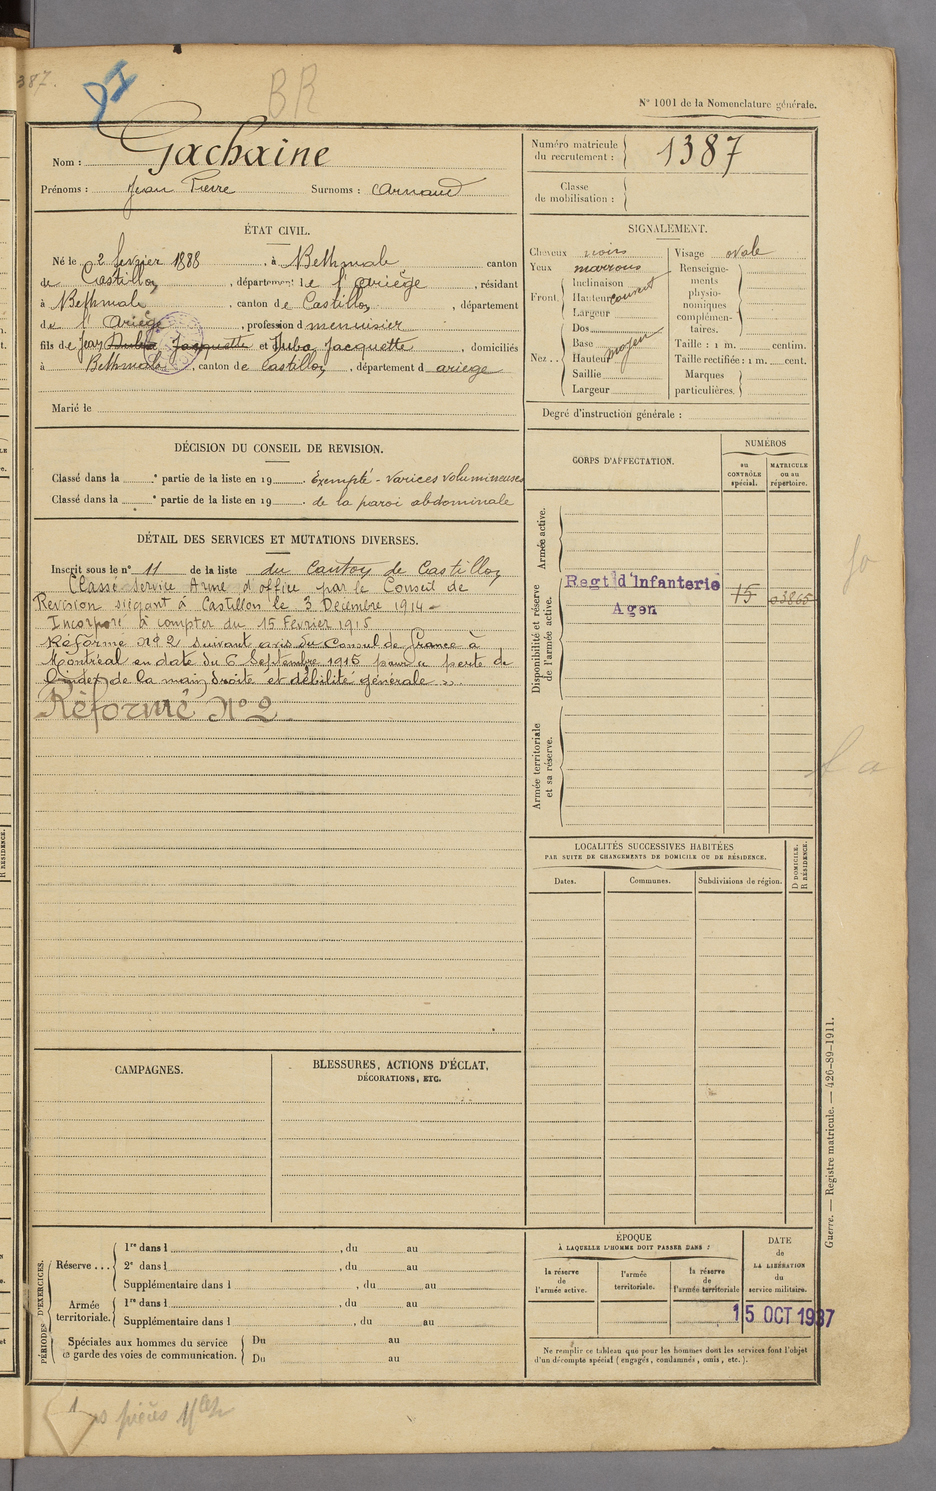 387.
BR
N° 1001 de la Nomenclature générale.
Nom : Gachaine
Prénoms : Jean Pierre Surnoms : Arnaud
Numéro matricule du recrutement : 1387
Classe de mobilisation :
ÉTAT CIVIL.
Né le 2 fevrier 1888, à Bethmale canton
de Castillon, département de l'ariège, résidant
à Bethmale, canton de Castillon, département
de l'ariège, profession d menuisier
fils de Jean Duba Jacquette et Duba Jacquette, domiciliés
à Bethmale, canton de Castillon, département d ariege
Marié le
SIGNALEMENT.
Cheveux noirs Visage ovale
Yeux marrons Renseigne-
ments
physio-
nomiques
complémen-
taires.
Front. Inclinaison
Hauteur couvert
Largeur
Nez.. Dos
Base
Hauteur moyen
Saillie
Largeur
Taille : 1 m. centim.
Taille rectifiée : 1 m. cent.
Marques
particulières.
Degré d'instruction générale :
DÉCISION DU CONSEIL DE REVISION.
Classé dans la ° partie de la liste en 19 . Exempté - varices volumineuses
Classé dans la ° partie de la liste en 19 . de la paroi abdominale
DÉTAIL DES SERVICES ET MUTATIONS DIVERSES.
Inscrit sous le n° 11 de la liste du Canton de Castillon
Classé Service Armé d'office par le Conseil de
Revision siégant à Castillon le 3 Décembre 1914 -
Incorporé à compter du 15 Février 1915
Réformé N° 2 suivant avis du Consul de france à
Montréal en date du 6 Septembre 1916 pour « perte de
l'index de la main droite et débilité générale ».
Réformé N° 2
CORPS D'AFFECTATION.
NUMÉROS
au CONTRÔLE spécial.
MATRICULE ou au répertoire.
Armée active.
Disponibilité et réserve de l'armée active.
Regt d'Infanterie 15 03865
Agen
Armée territoriale et sa réserve.
LOCALITÉS SUCCESSIVES HABITÉES
PAR SUITE DE CHANGEMENTS DE DOMICILE OU DE RÉSIDENCE.
Dates. Communes. Subdivisions de région. D DOMICILE. R RÉSIDENCE.
CAMPAGNES.
BLESSURES, ACTIONS D'ÉCLAT,
DÉCORATIONS, ETC.
PÉRIODES D'EXERCICES.
Réserve ... 1re dans l , du au
2e dans l , du au
Supplémentaire dans l , du au
Armée territoriale. 1re dans l , du au
Supplémentaire dans l , du au
Spéciales aux hommes du service
de garde des voies de communication. Du au
Du au
ÉPOQUE
À LAQUELLE L'HOMME DOIT PASSER DANS :
la réserve de l'armée active.
l'armée territoriale.
la réserve de l'armée territoriale
DATE de LA LIBÉRATION du service militaire.
15 OCT 1937
Ne remplir ce tableau que pour les hommes dont les services font l'objet
d'un décompte spécial (engagés, condamnés, omis, etc.).
Guerre. — Registre matricule. — 426-89-1911.